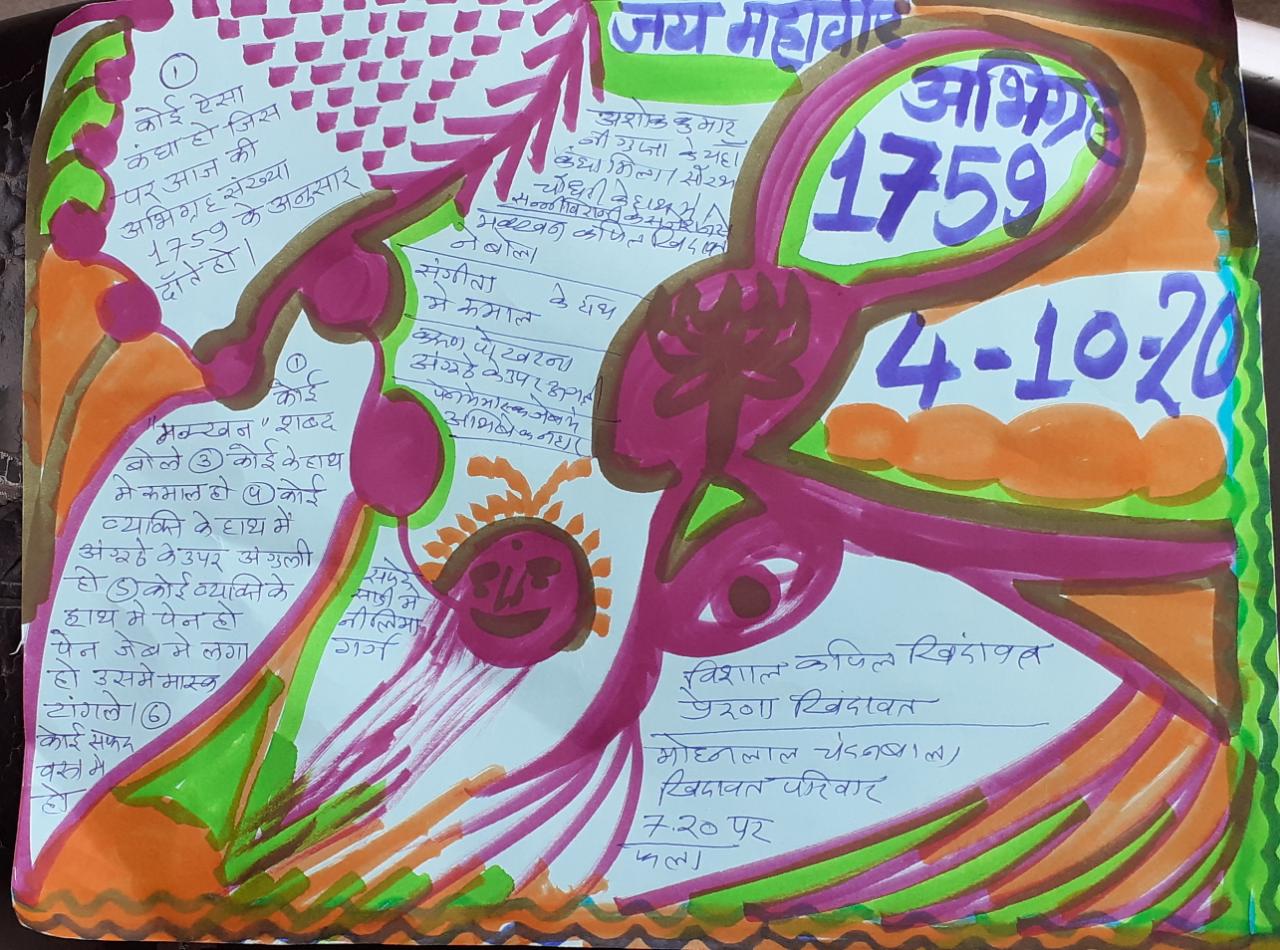 जय महावीर
अभिग्रह
1759
4-10-20
①
कोई ऐसा
कंघा हो जिस
पर आज की
अभिग्रह संख्या
1759 के अनुसार
दाँते हो।
①
कोई
"मक्खन" शब्द
बोले ③ कोई के हाथ
मे कमाल हो ④ कोई
व्यक्ति के हाथ में
अंगूठे के उपर अंगुली
हो ⑤ कोई व्यक्ति के
हाथ मे पेन हो
पेन जेब मे लगा
हो उसमे मास्क
टांगले। ⑥
कोई सफेद
वस्त्र मे
हो
अशोक कुमार
जी के यहाँ
कंघा मिला सौरभ
चौधरी के हाथ मे
मक्खन कपिल खिंदावत
ने बोला
संगीता के हाथ
मे कमाल
अंगूठे के उपर
सफेद
साड़ी मे
नीलिमा
गर्ग
विशाल कपिल खिंदावत
प्रेरणा खिंदावत
मोहनलाल चंदनबाला
खिंदावत परिवार
7.20 पर
फला